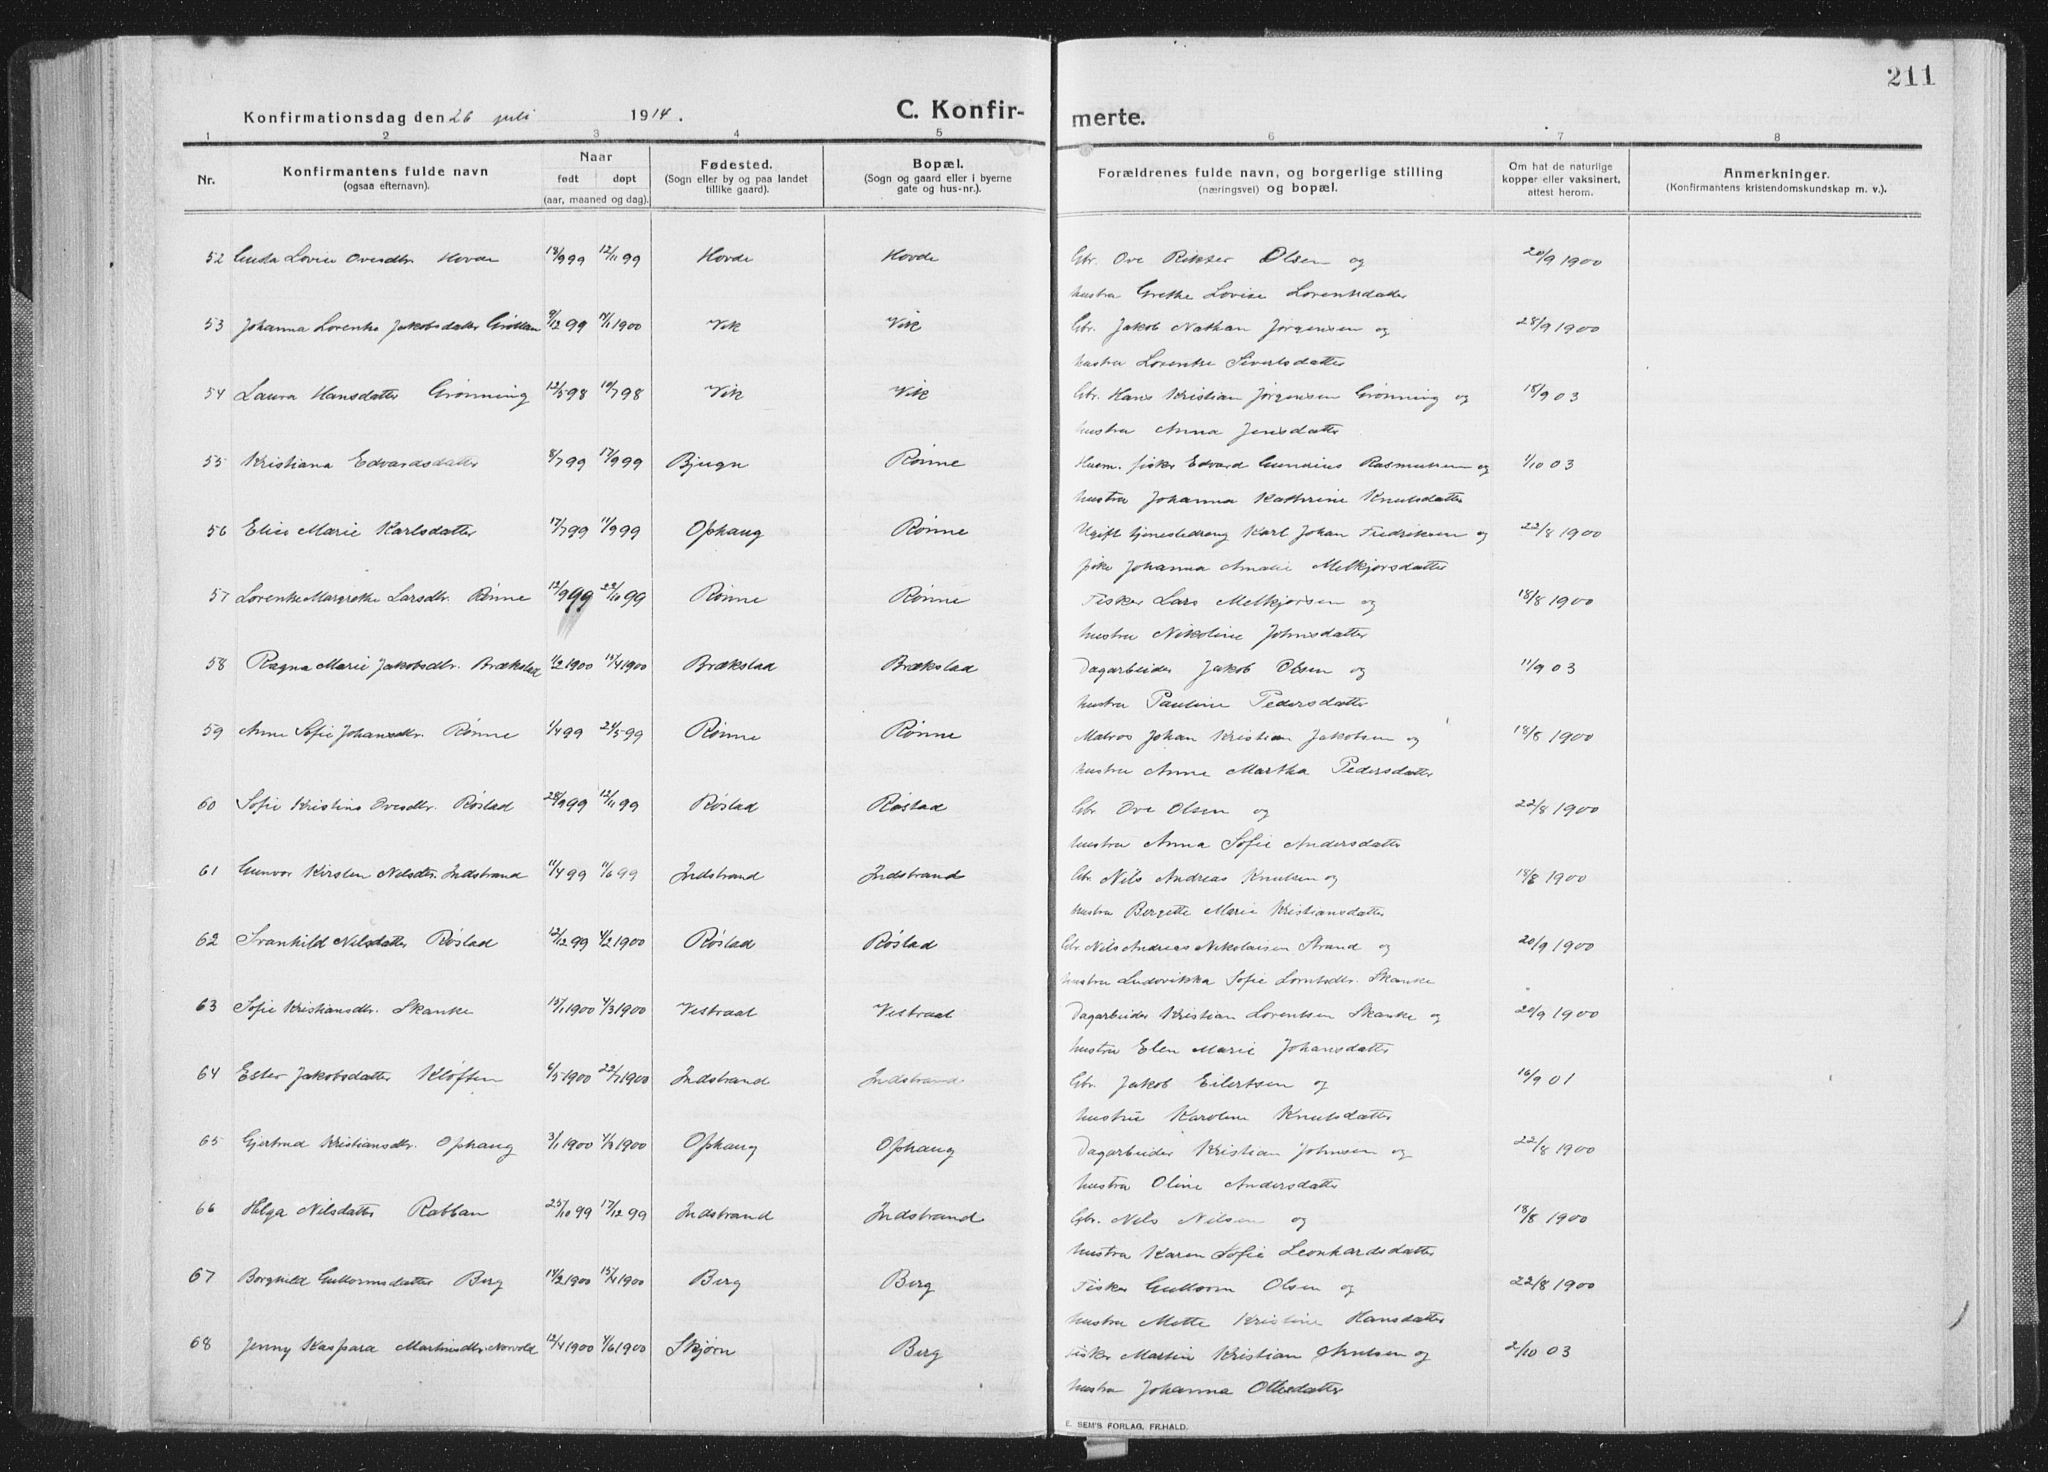 211
Konfirmationsdag den 26 juli 1914.
C. Konfir- merte.
1 2 3 4 5 6 7 8
Nr.
Konfirmantens fulde navn
(ogsaa efternavn).
Naar
født døpt
(aar, maaned og dag).
Fødested.
(Sogn eller by og paa landet
tillike gaard).
Bopæl.
(Sogn og gaard eller i byerne
gate og hus-nr.).
Forældrenes fulde navn, og borgerlige stilling
(næringsvei) og bopæl.
Om hat de naturlige
kopper eller vaksinert,
attest herom.
Anmerkninger.
(Konfirmantens kristendomskundskap m. v.).
52 Lovise Ovesdtr. Hovde 12/11 99 Hovde Hovde Gbr. Ove Rikter Olsen og 20/9 1900
hustru Grethe Lovise Lorentsdatter
53 Johanna Lorentse Jakobsdatter 9/12 99 Vik Vik Gbr. Jakob Nathan Jørgensen og 28/9 1900
hustru Lorentse Sivertsdatter
54 Laura Hansdatter Grønning 12/5 98 10/7 98 Vik Vik Gbr. Hans Kristian Jørgensen Grønning og 18/9 03
hustru Anna Jensdatter
55 Kristiana Edvardsdatter 8/7 99 17/9 99 Bjugn Rønne Husm. fisker Edvard Gundius Rasmussen og 1/10 03
hustru Johanna Kathrine Knutsdatter
56 Elise Marie Karlsdatter 17/7 99 11/9 99 Ophaug Rønne Ugift tjenestedreng Karl Johan Fredriksen og 22/8 1900
pike Johanna Amalie Melkjorsdatter
57 Lorentse Margrethe Larsdtr. Rønne 12/9 99 22/10 99 Rønne Rønne Fisker Lars Melkjorsen og 18/8 1900
hustru Nikoline Johnsdatter
58 Ragna Marie Jakobsdtr. Brækstad 1/2 1900 15/4 1900 Brækstad Brækstad Dagarbeider Jakob Olsen og 11/9 03
hustru Pauline Pedersdatter
59 Anne Sofie Johansdtr. Rønne 1/4 99 24/5 99 Rønne Rønne Matros Johan Kristian Jakobsen og 18/8 1900
hustru Anne Martha Pedersdatter
60 Sofie Kristine Ovesdtr. Røstad 28/9 99 12/11 99 Røstad Røstad Gbr Ove Olsen og 22/8 1900
hustru Anna Sofie Andersdatter
61 Gunvor Kirsten Nilsdtr. Indstrand 11/4 99 11/6 99 Indstrand Indstrand Gbr Nils Andreas Knutsen og 18/8 1900
hustru Bergette Marie Kristiansdatter
62 Svanhild Nilsdatter Røstad 12/12 99 4/2 1900 Røstad Røstad Gbr Nils Andreas Nikolaisen Strand og 20/9 1900
hustru Ludovikka Sofie Lorntsdtr. Skanke
63 Sofie Kristiansdtr. Skanke 15/1 1900 4/3 1900 Vestraat Vestraat Dagarbeider Kristian Lorentsen Skanke og 20/9 1900
hustru Elen Marie Johansdatter
64 Ester Jakobsdatter Kløften 6/5 1900 22/7 1900 Indstrand Indstrand Gbr. Jakob Eilertsen og 16/9 01
hustru Karoline Knutsdatter
65 Gjertrud Kristiansdtr. Ophaug 3/1 1900 4/3 1900 Ophaug Ophaug Dagarbeider Kristian Johnsen og 22/8 1900
hustru Oline Andersdatter
66 Helga Nilsdatter Rabban 25/10 99 17/12 99 Indstrand Indstrand Gbr. Nils Nilsen og 18/8 1900
hustru Karen Sofie Leonhardsdatter
67 Borghild Guttormsdatter Berg 14/2 1900 15/4 1900 Berg Berg Fisker Guttorm Olsen og 22/8 1900
hustru Mette Kristine Hansdatter
68 Jenny Kaspara Martinsdtr. 12/4 1900 4/6 1900 Skjørn Berg Fisker Martin Kristian og 2/10 03
hustru Johanna Ottesdatter
E. SEM'S FORLAG, FR.HALD.